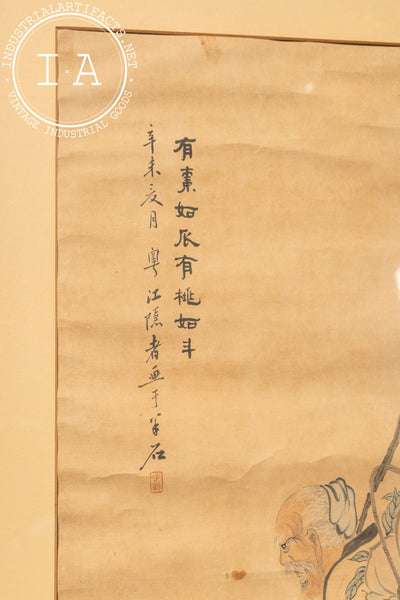 INDUSTRIALARTIFACTS.NET
I·A
VINTAGE INDUSTRIAL GOODS
有棗如瓜有桃如斗
辛未夏月粵江隱者畫于羊石